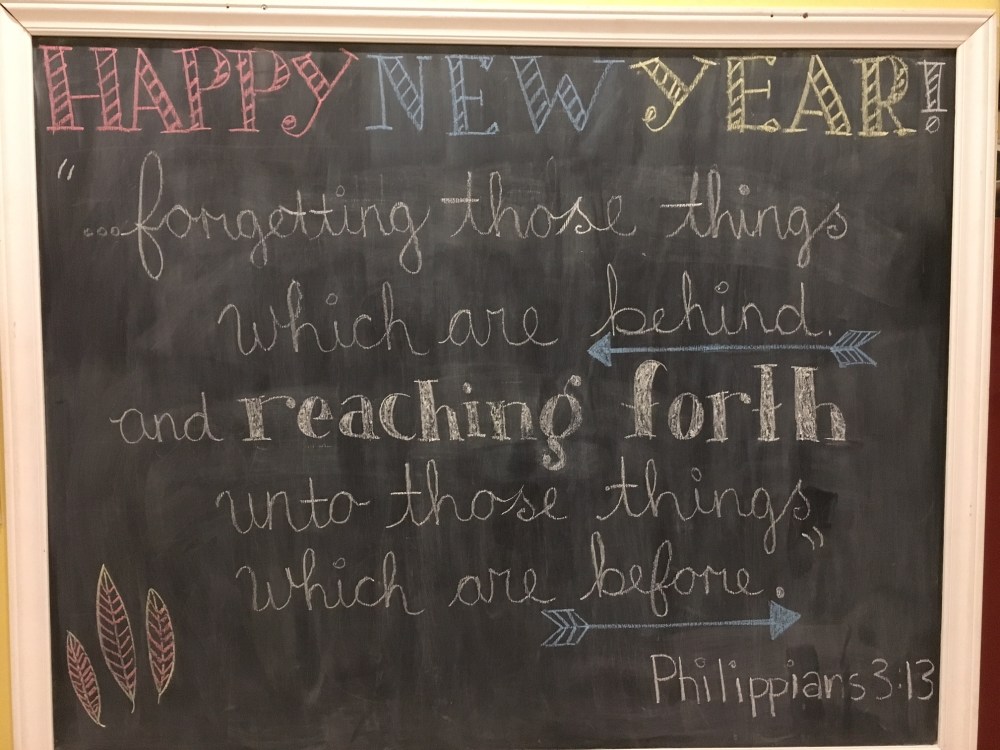 HAPPY NEW YEAR!
"...forgetting those things
which are behind.
and reaching forth
unto those things
which are before."
Philippians 3:13